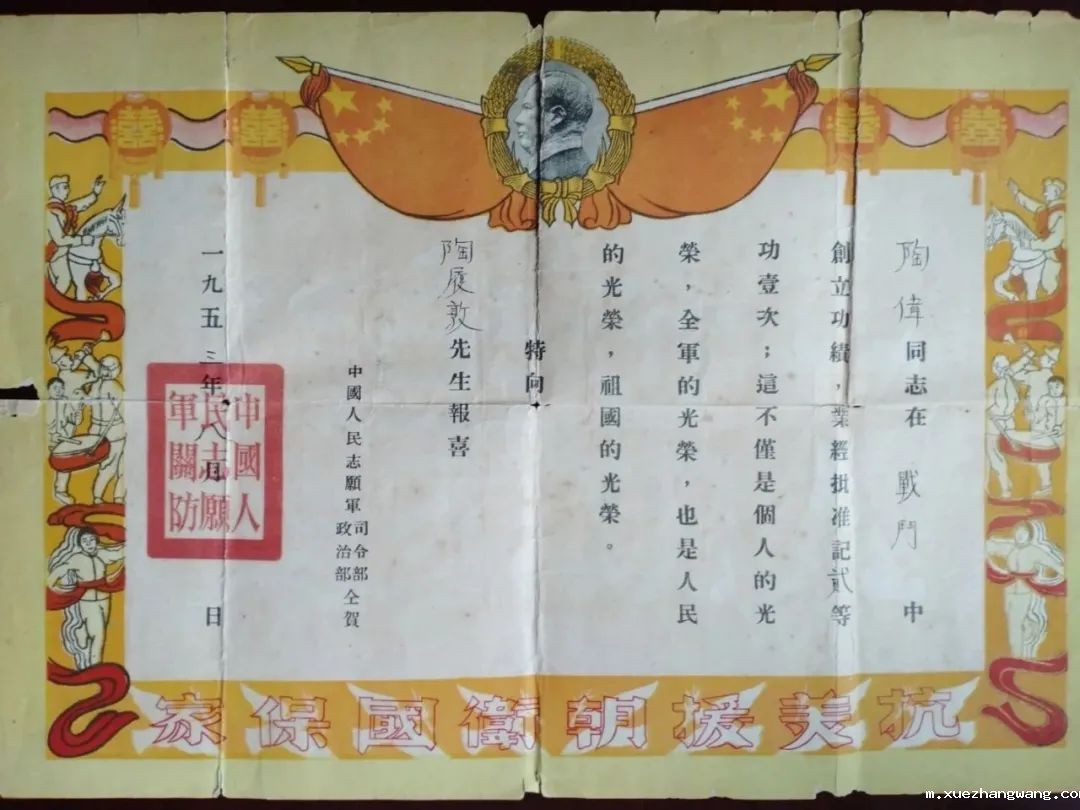 囍 囍 囍 囍
陶偉同志在 戰鬥 中
創立功績，業經批准記貳等
功壹次；這不僅是個人的光
榮，全軍的光榮，也是人民
的光榮，祖國的光榮。
特向
陶履敦先生報喜
中國人民志願軍司令部
政治部仝賀
一九五三年八月 日
中國人
民志願
軍關防
抗美援朝衛國保家
m.xuezhangwang.com